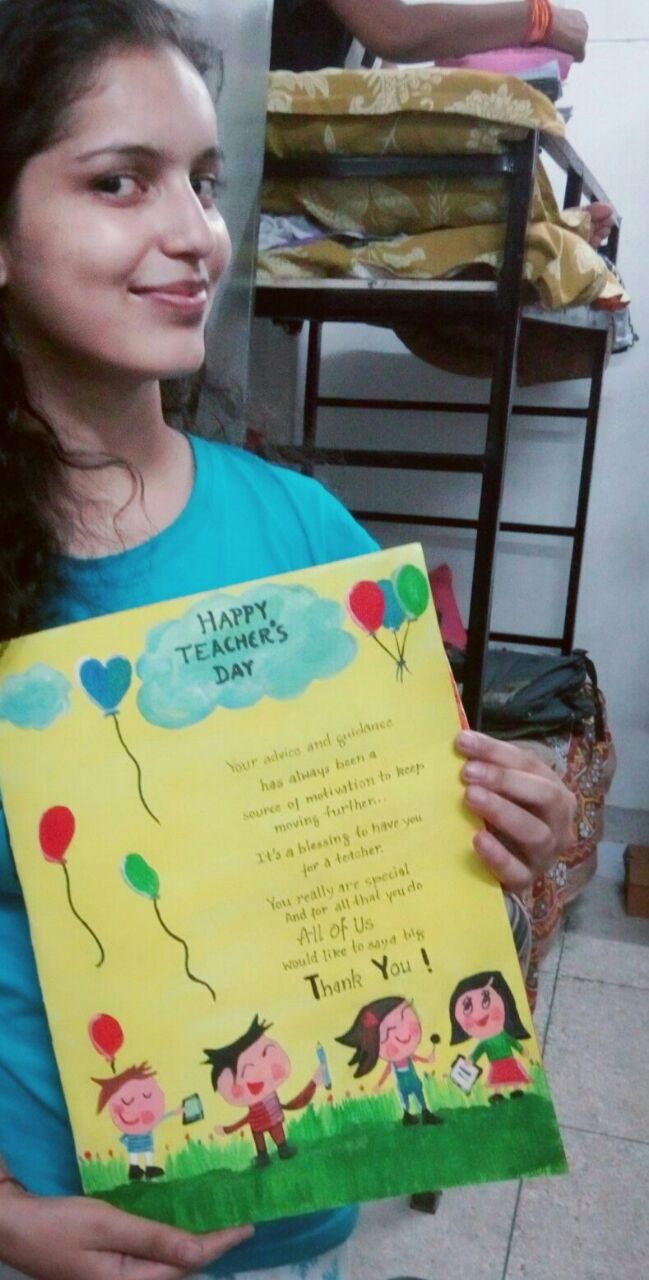 HAPPY
TEACHER'S
DAY
Your advice and guidance
has always been a
source of motivation to keep
moving further...
It's a blessing to have you
for a teacher.
You really are special
And for all that you do
All Of Us
would like to say a big
Thank You !